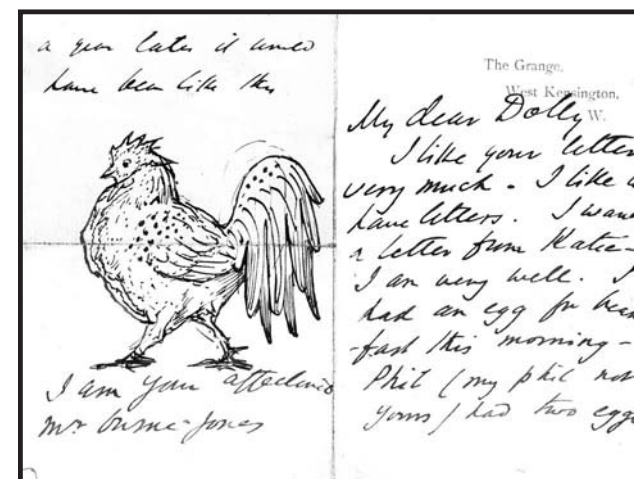 a year later it would
have been like this
I am your affectionate
Mr Burne-Jones
The Grange,
West Kensington,
W.
My dear Dolly
I like your letter
very much - I like
have letters. I want
a letter from Katie -
I am very well. I
had an egg for break
-fast this morning -
Phil (my phil not
yours) had two eggs